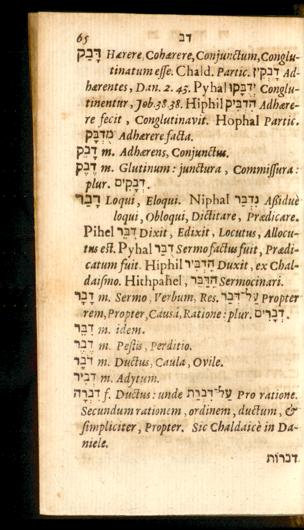 65 דב
דָּבַק Hærere, Cohærere, Conjunctum, Conglu-
tinatum esse. Chald. Partic. דָּבְקִין Ad-
hærentes, Dan. 2. 43. Pyhal יְדֻבָּקוּ Conglu-
tinentur, Job 38 38. Hiphil הִדְבִּיק Adhære-
re fecit, Conglutinavit. Hophal Partic.
מֻדְבָּק Adhærere facta.
דָּבֵק m. Adhærens, Conjunctus.
דֶּבֶק m. Glutinum: junctura, Commissura:
plur. דְּבָקִים.
דָּבַר Loqui, Eloqui. Niphal נִדְבַּר Assiduè
loqui, Obloqui, Dictitare, Prædicare.
Pihel דִּבֵּר Dixit, Edixit, Locutus, Allocu-
tus est. Pyhal דֻּבַּר Sermo factus fuit, Prædi-
catum fuit. Hiphil הִדְבִּיר Duxit, ex Chal-
daismo. Hithpahel, הִדַּבֵּר Sermocinari.
דָּבָר m. Sermo, Verbum, Res. עַל־דְּבַר Propter
rem, Propter, Causâ, Ratione: plur. דְּבָרִים.
דִּבֵּר m. idem.
דֶּבֶר m. Pestis, Perditio.
דֹּבֶר m. Ductus, Caula, Ovile.
דְּבִיר m. Adytum.
דִּבְרָה f. Ductus: unde עַל־דִּבְרַת Pro ratione.
Secundum rationem, ordinem, ductum, &
simpliciter, Propter. Sic Chaldaicè in Da-
niele.
דברות